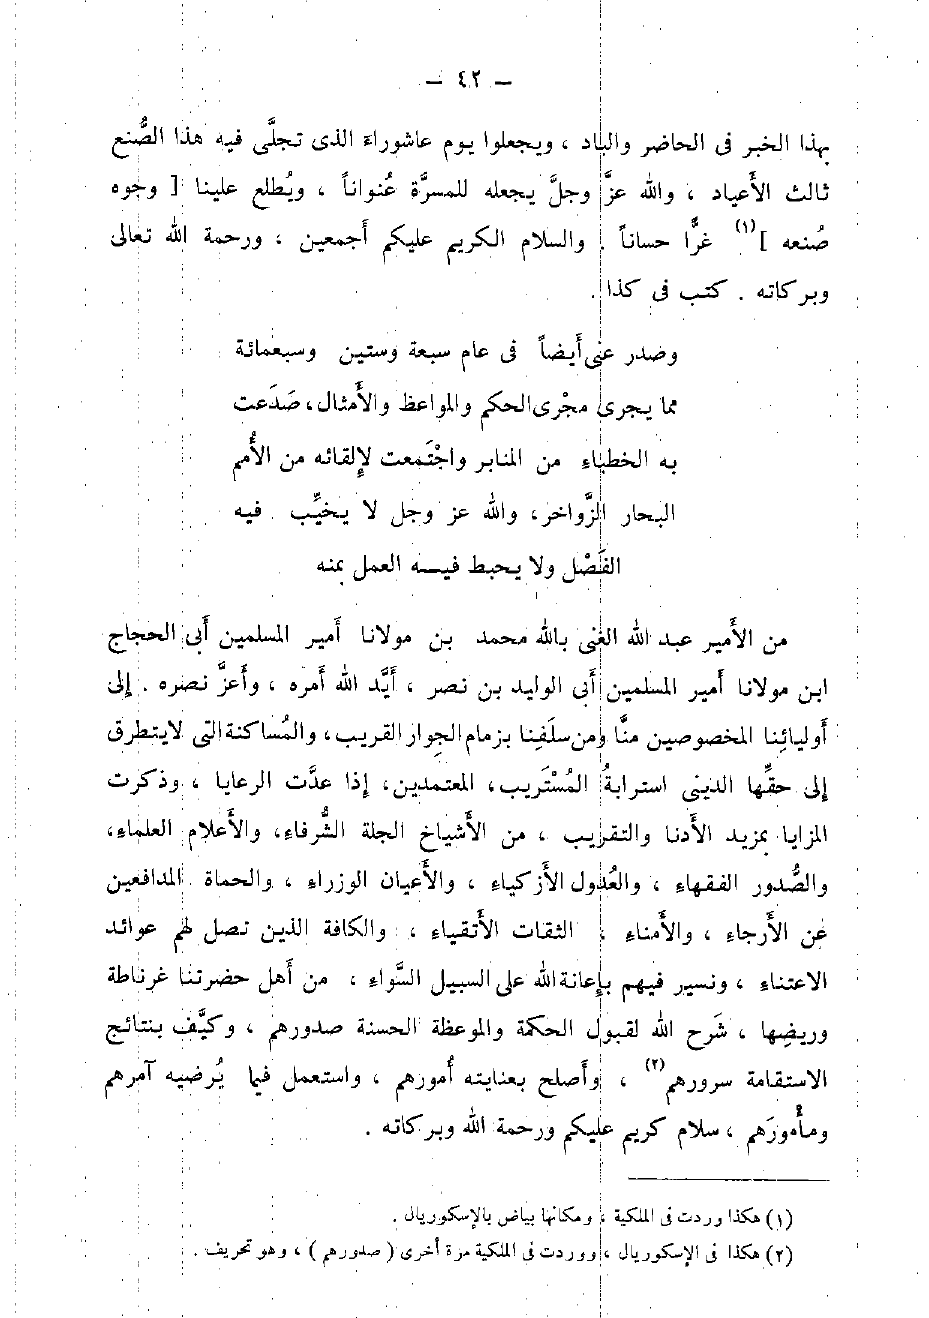 — ٤٢ —
بهذا الخبر فى الحاضر والباد ، ويجعلوا يوم عاشوراءَ الذى تجلَّى فيه هذا الصُّنع
ثالث الأَعياد ، والله عزَّ وجلَّ يجعله للمسرَّة عُنواناً ، ويُطلع علينا [ وجوه
صُنعه ] (١) غرًّا حساناً . والسلام الكريم عليكم أَجمعين ، ورحمة الله تعالى
وبركاته . كتب فى كذا .
وصدر عنى أَيضاً فى عام سبعة وستين وسبعمائة
مما يجرى مجْرى الحكم والمواعظ والأَمثال ، صَدَعت
به الخطباء من المنابر واجْتَمعت لإلقائه من الأُمم
البحار الزَّواخر ، والله عز وجل لا يخيِّب فيه
الفَضْل ولا يحبط فيـه العمل بمنه
من الأَمير عبد الله الغنى بالله محمد بن مولانا أَمير المسلمين أَبى الحجاج
ابن مولانا أَمير المسلمين أَبى الوليد بن نصر ، أَيَّد الله أَمره ، وأَعزَّ نصره . إلى
أَوليائِنا المخصوصين منَّا ومن سلَفِنا بزمام الجوار القريب ، والمُساكنة التى لايتطرق
إلى حقِّها الدينى استرابةُ المُسْتَريب ، المعتمدين ، إذا عدَّت الرعايا ، وذكرت
المزايا بمزيد الأَدنا والتقريب ، من الأَشياخ الجلة الشُّرفاء ، والأَعلام العلماء ،
والصُّدور الفقهاء ، والعُدول الأَزكياء ، والأَعيان الوزراء ، والحماة المدافعين
عن الأَرجاء ، والأُمناء ، الثقات الأَتقياء ، والكافة الذين تصل لهم عوائد
الاعتناء ، ونسير فيهم بإعانة الله على السبيل السَّواء ، من أَهل حضرتنا غرناطة
وربضِها ، شَرح الله لقبول الحكمة والموعظة الحسنة صدورهم ، وكيَّف بنتائج
الاستقامة سرورهم (٢) ، وأصلح بعنايته أُمورهم ، واستعمل فيما يُرضيه آمرهم
ومأْمورَهم ، سلام كريم عليكم ورحمة الله وبركاته .
(١) هكذا وردت فى الملكية ، ومكانها بياض بالإسكوريال .
(٢) هكذا فى الإسكوريال ، ووردت فى الملكية مرة أخرى ( صدورهم ) ، وهو تحريف .